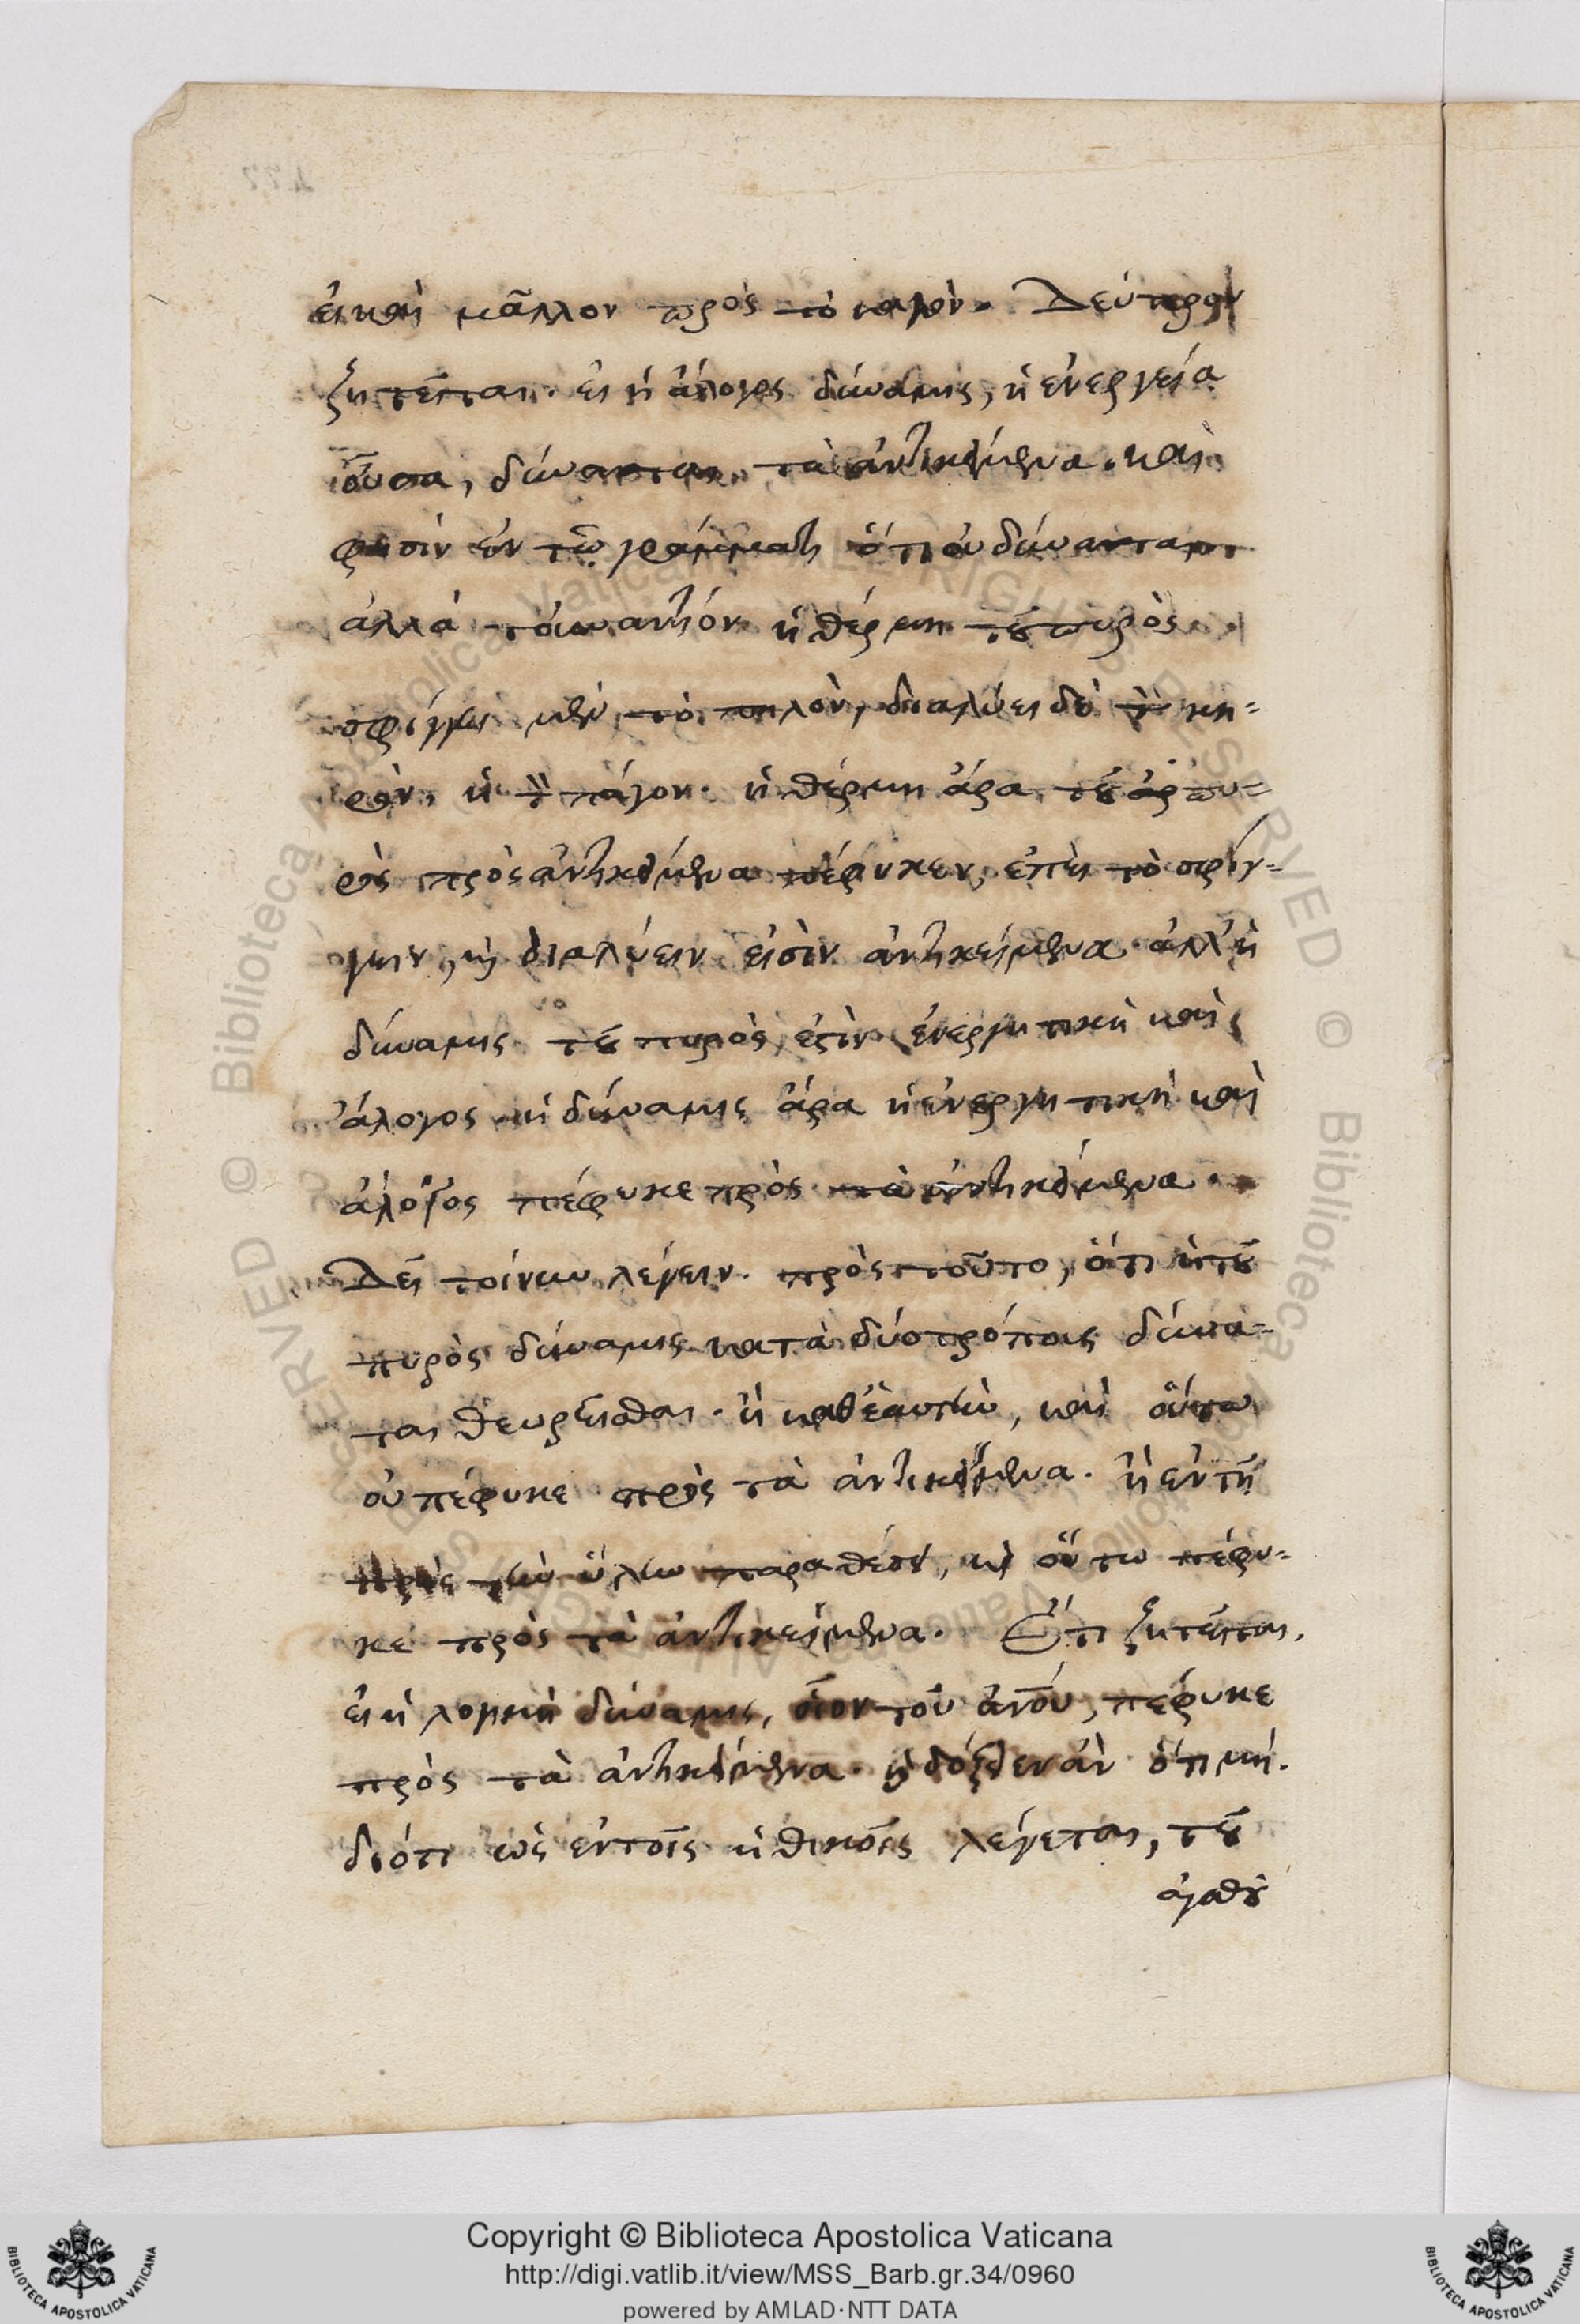 εἰ καὶ μᾶλλον πρὸς τὸ καλὸν. Δεύτερον
ζητεῖται. εἰ ἡ ἄλογος δύναμις, ἡ ἐνεργεία
οὖσα, δύναται τὰ ἀντικείμενα. καὶ
φησὶν ἐν τῷ γράμματι ὅτι οὐ δύναται
ἀλλὰ τοὐναντίον ἡ θέρμη τοῦ πυρὸς
σφίγγει μὲν τὸ πηλὸν, διαλύει δὲ τὸν κη=
ρὸν, ἢ τὸν πάγον. ἡ θέρμη ἄρα τοῦ πυ=
ρὸς πρὸς ἀντικείμενα πέφυκεν, ἐπεὶ τὸ σφίγ=
γειν, καὶ διαλύειν εἰσὶν ἀντικείμενα. ἀλλ' ἡ
δύναμις τοῦ πυρὸς ἐστὶν ἐνεργητικὴ καὶ
ἄλογος. ἡ δύναμις ἄρα ἡ ἐνεργητικὴ καὶ
ἄλογος πέφυκε πρὸς τὰ ἀντικείμενα.
Δεῖ τοίνυν λέγειν. πρὸς τοῦτο, ὅτι ἡ τοῦ
πυρὸς δύναμις κατὰ δύο τρόπους δύνα=
ται θεωρεῖσθαι. ἢ καθ' ἑαυτὴν, καὶ οὕτω
οὐ πέφυκε πρὸς τὰ ἀντικείμενα. ἢ ἐν τῇ
πρὸς τὴν ὕλην παραθέσει, καὶ οὕτω πέφυ=
κε πρὸς τὰ ἀντικείμενα. Ἔτι ζητεῖται,
εἰ ἡ λογικὴ δύναμις, οἷον τοῦ ἀνου, πέφυκε
πρὸς τὰ ἀντικείμενα. καὶ δόξειεν ἂν ὅτι μή.
διότι ὡς ἐν τοῖς ἠθικοῖς λέγεται, τοῦ
ἀγαθοῦ
Copyright © Biblioteca Apostolica Vaticana
http://digi.vatlib.it/view/MSS_Barb.gr.34/0960
powered by AMLAD·NTT DATA